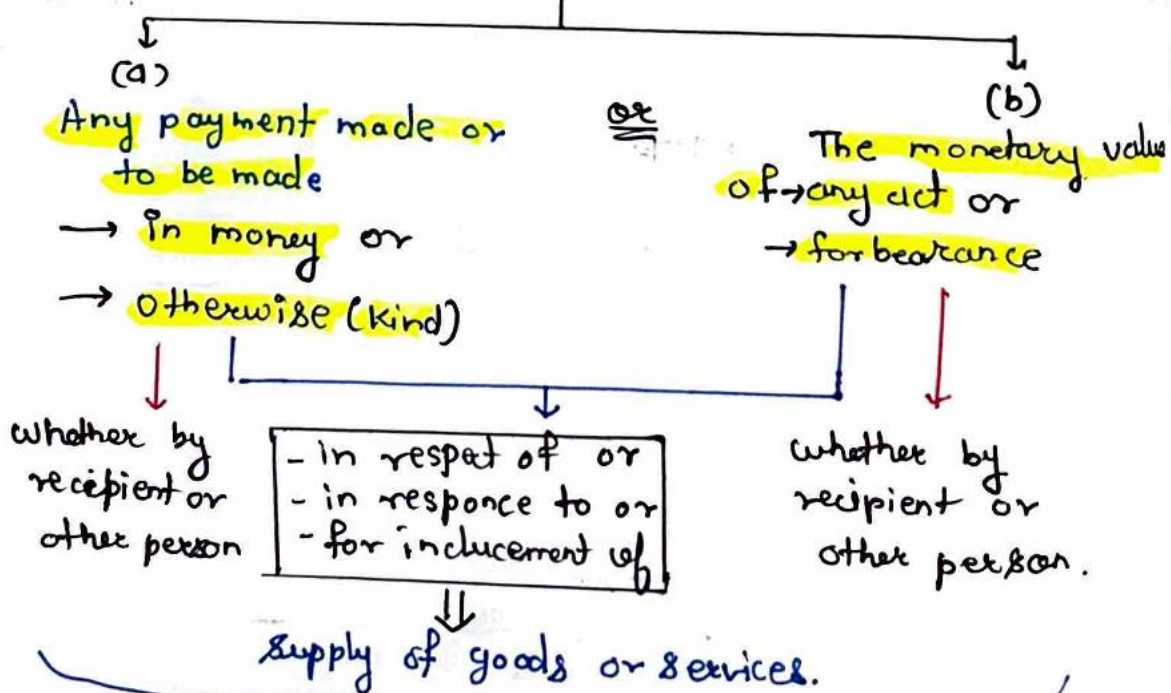 (a)
Any payment made or
to be made
→ in money or
→ otherwise (Kind)
or
(b)
The monetary value
of → any act or
→ forbearance
whether by
recipient or
other person
- in respet of or
- in responce to or
- for inducement of
whether by
recipient or
other person.
supply of goods or services.